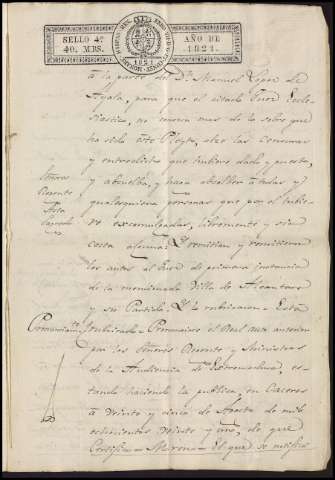 SELLO 4º
40. MRS.
AÑO DE
1821.
1821
à la parte de Dn. Manuel Lopez de
Ayala, para que el citado Juez Ecle-
siastico, no conozca mas de lo sobre que
ha sido este Pleyto, alze las Censuras
y entredichos que hubiere dado, y puesto,
y absuelba, y haga absolber à todas y
qualesquiera personas que por el hubie-
re excomulgadas, libremente y sin
costa alguna: Y remitian y remitieron
los autos al Juez de primera instancia
de la mencionada Villa de Alcantara
y su Partido. Y lo rubricaron = Está
rubricado = Pronunciose el Real auto anterior
por los Señores Regente y Ministros
de la Audiencia de Extremadura, es-
tando haciendo la publica, en Caceres
à veinte y cinco de Agosto de mil
ochocientos veinte y uno, de que
Certifico = Moreno = El que se notificó
Señores
Regente
Pronunciamto.